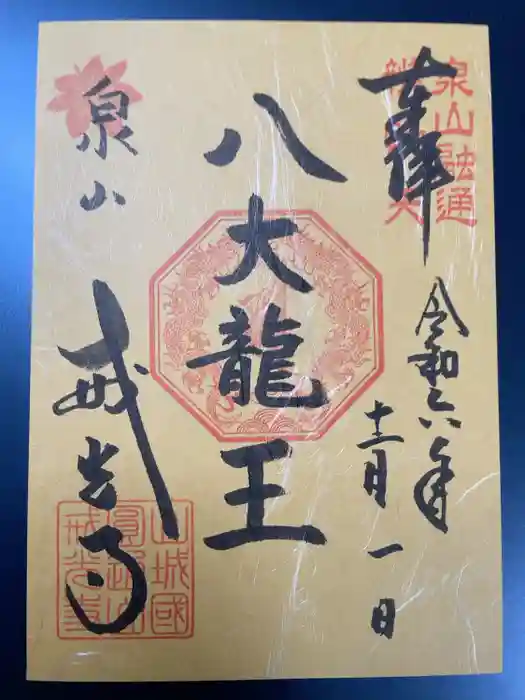 奉拝
泉山融通
辨財天
令和六年
十二月一日
八大龍王
泉山
戒光寺
山城國
戒光寺